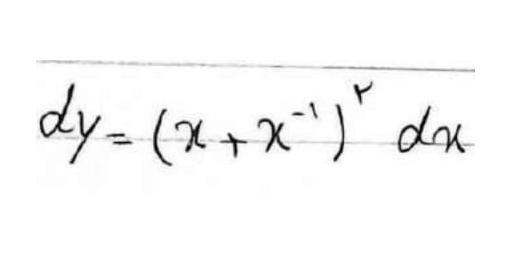 dy = (x + x⁻¹)^٢ dx